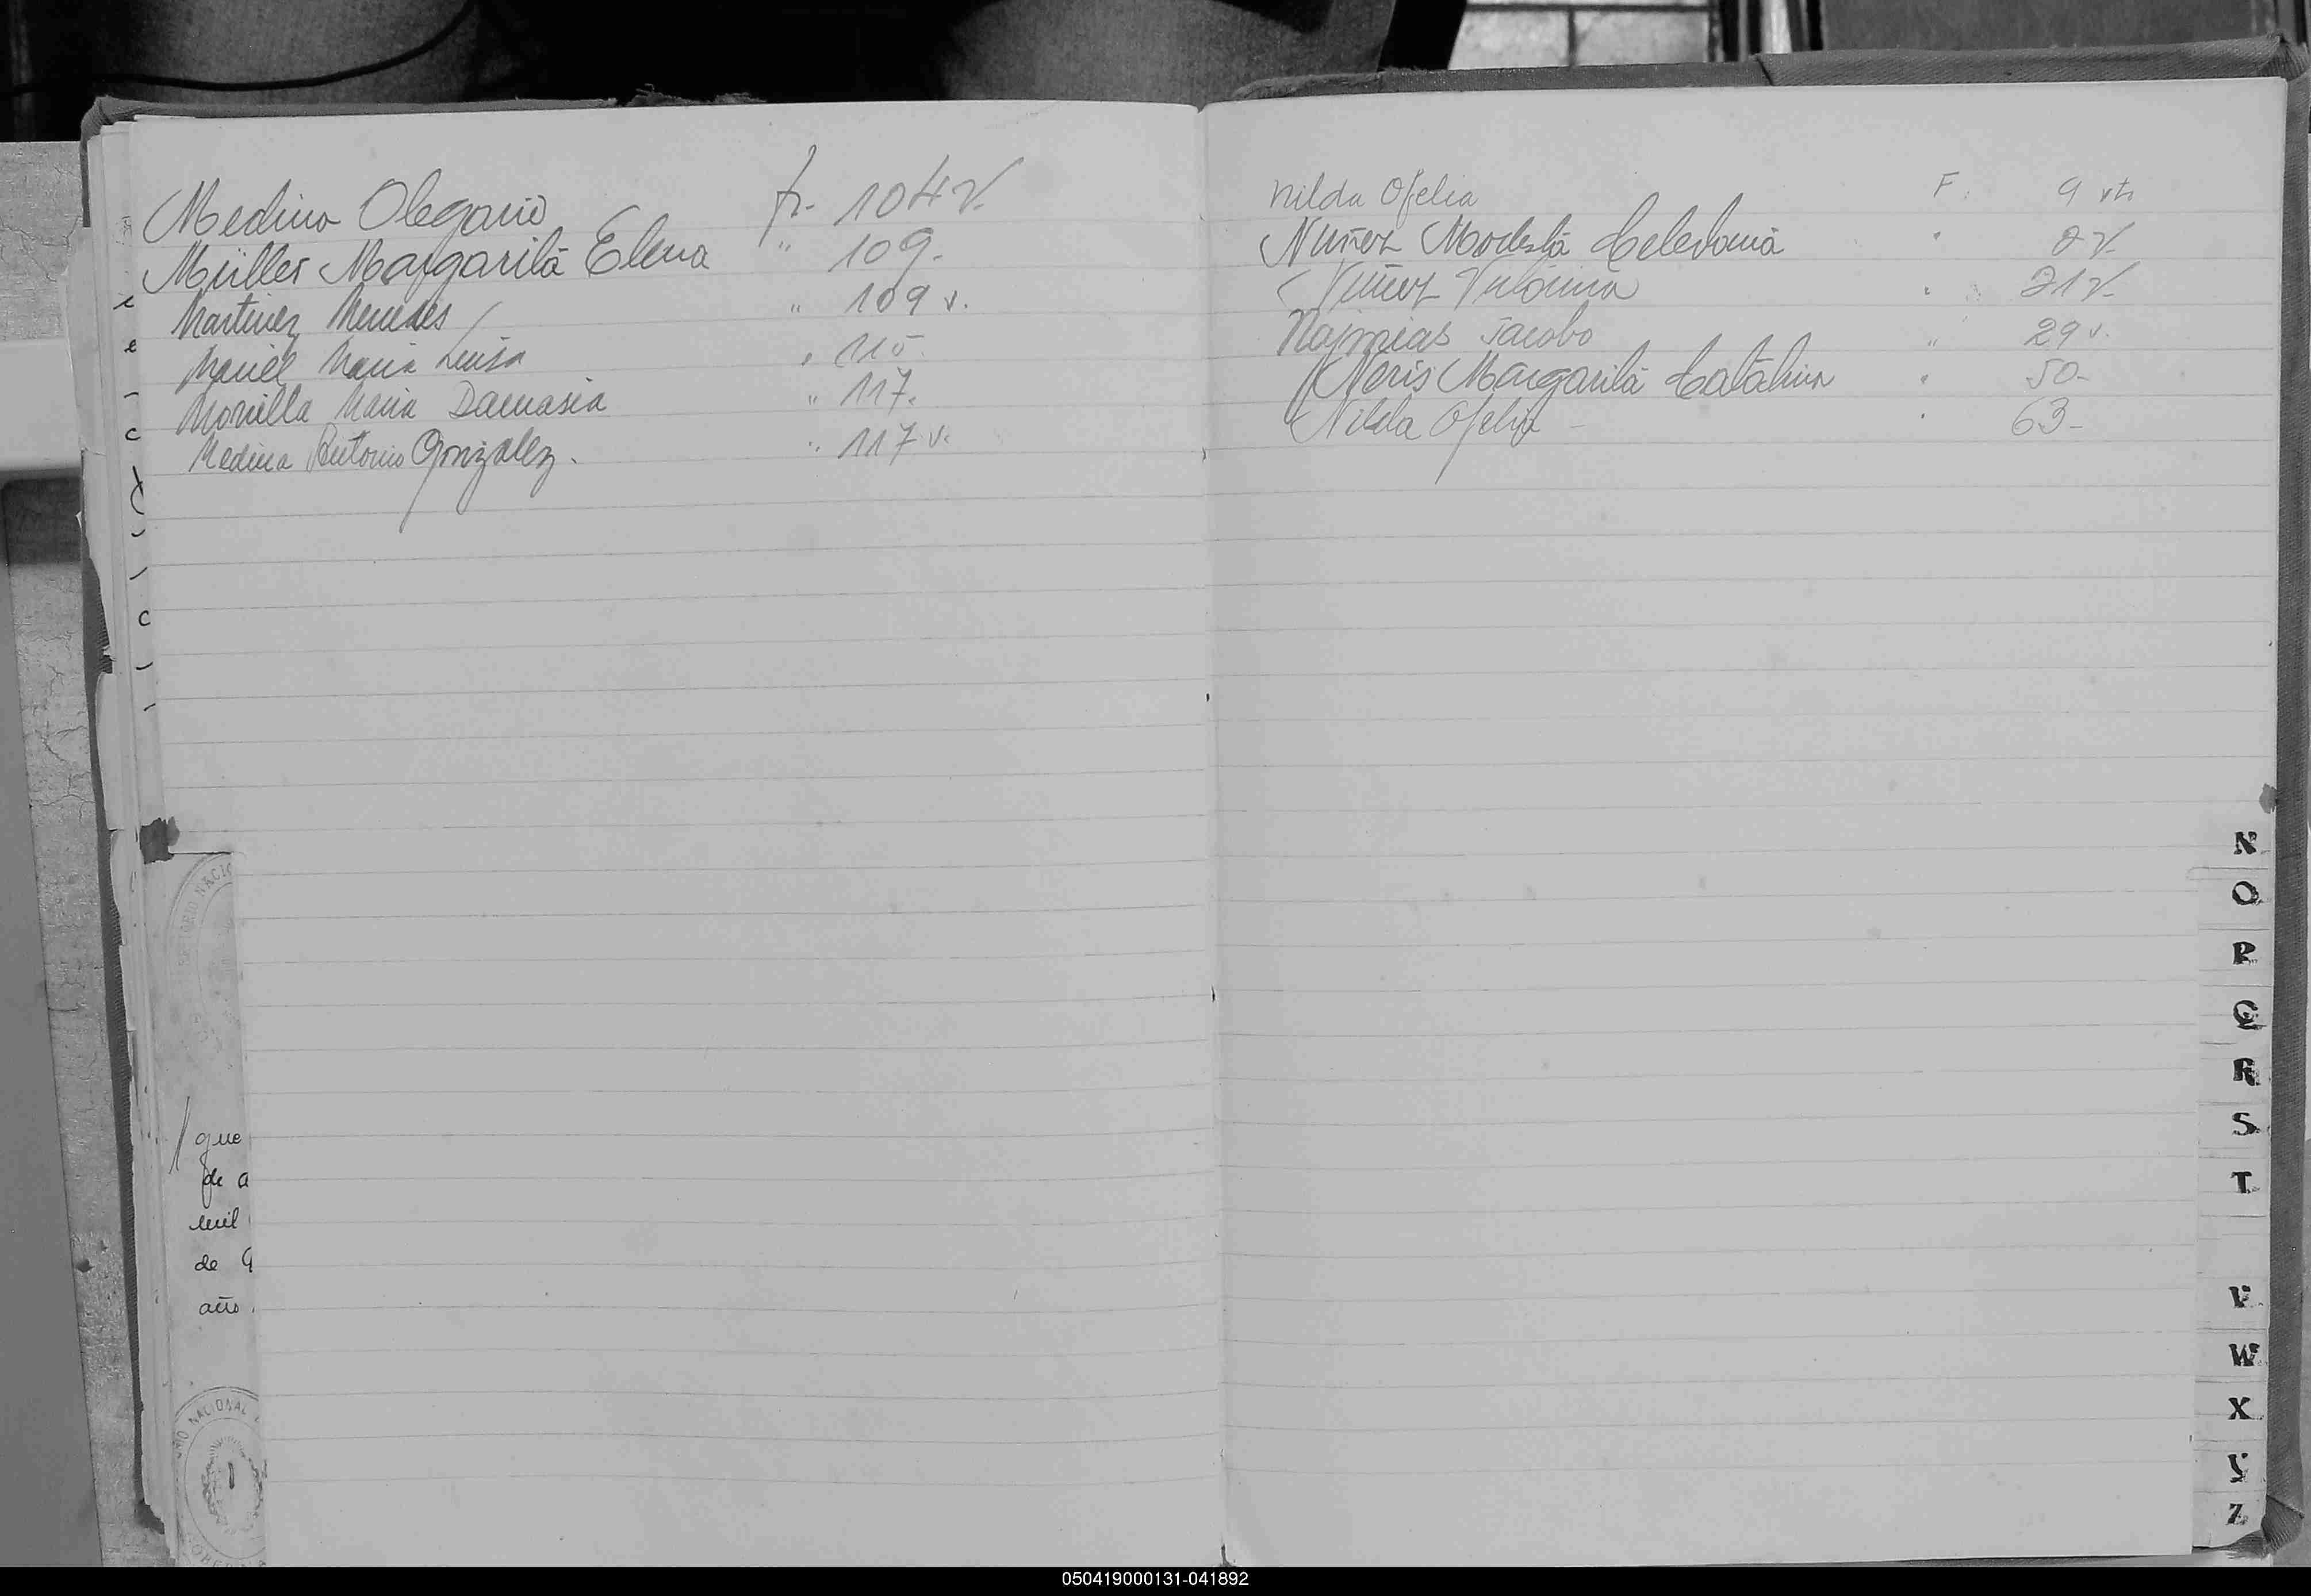 Medina Olegario fr. 104 v.
Müller Margarita Elena " 109.
Martinez Mercedes " 109 v.
Maciel Maria Luisa " 115.
Morilla Maria Damasia " 117.
Medina Antonio Gonzalez. " 117 v.
que
de a
mil
de
año
NACIONAL
Nilda Ofelia F. 9 vta
Nuñez Modesta Celedonia " v.
Nuñez " 21 v.
Najmias Jacobo " 29 v.
Neris Margarita Catalina " 50-
Nilda Ofelia - " 63-
N
O
P
Q
R
S
T
V
W
X
Y
Z
050419000131-041892